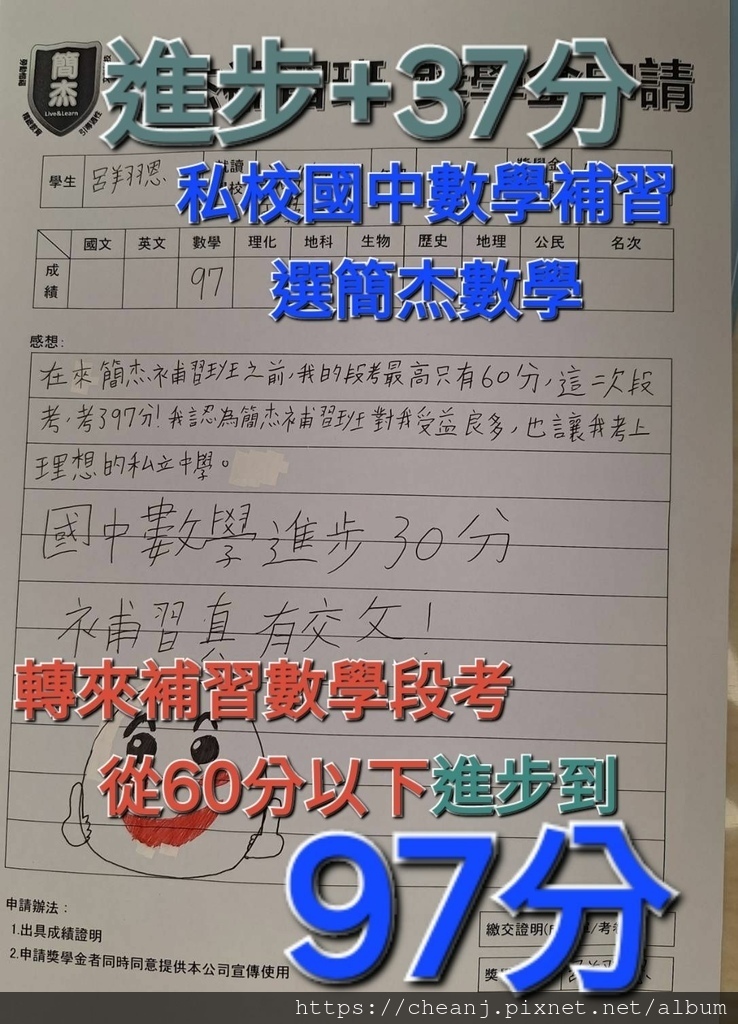 進步+37分
簡杰
Live&Learn
請
私校國中數學補習
學生 呂翔恩
選簡杰數學
國文 英文 數學 理化 地科 生物 歷史 地理 公民 名次
成績 97
感想:
在來簡杰補習班之前,我的段考最高只有60分,這二次段
考,考397分!我認為簡杰補習班對我受益良多,也讓我考上
理想的私立中學。
國中數學進步30分
補習真有交文!
轉來補習數學段考
從60分以下進步到
97分
申請辦法:
1.出具成績證明
2.申請獎學金者同時同意提供本公司宣傳使用
繳交證明
https://cheanj.pixnet.net/album